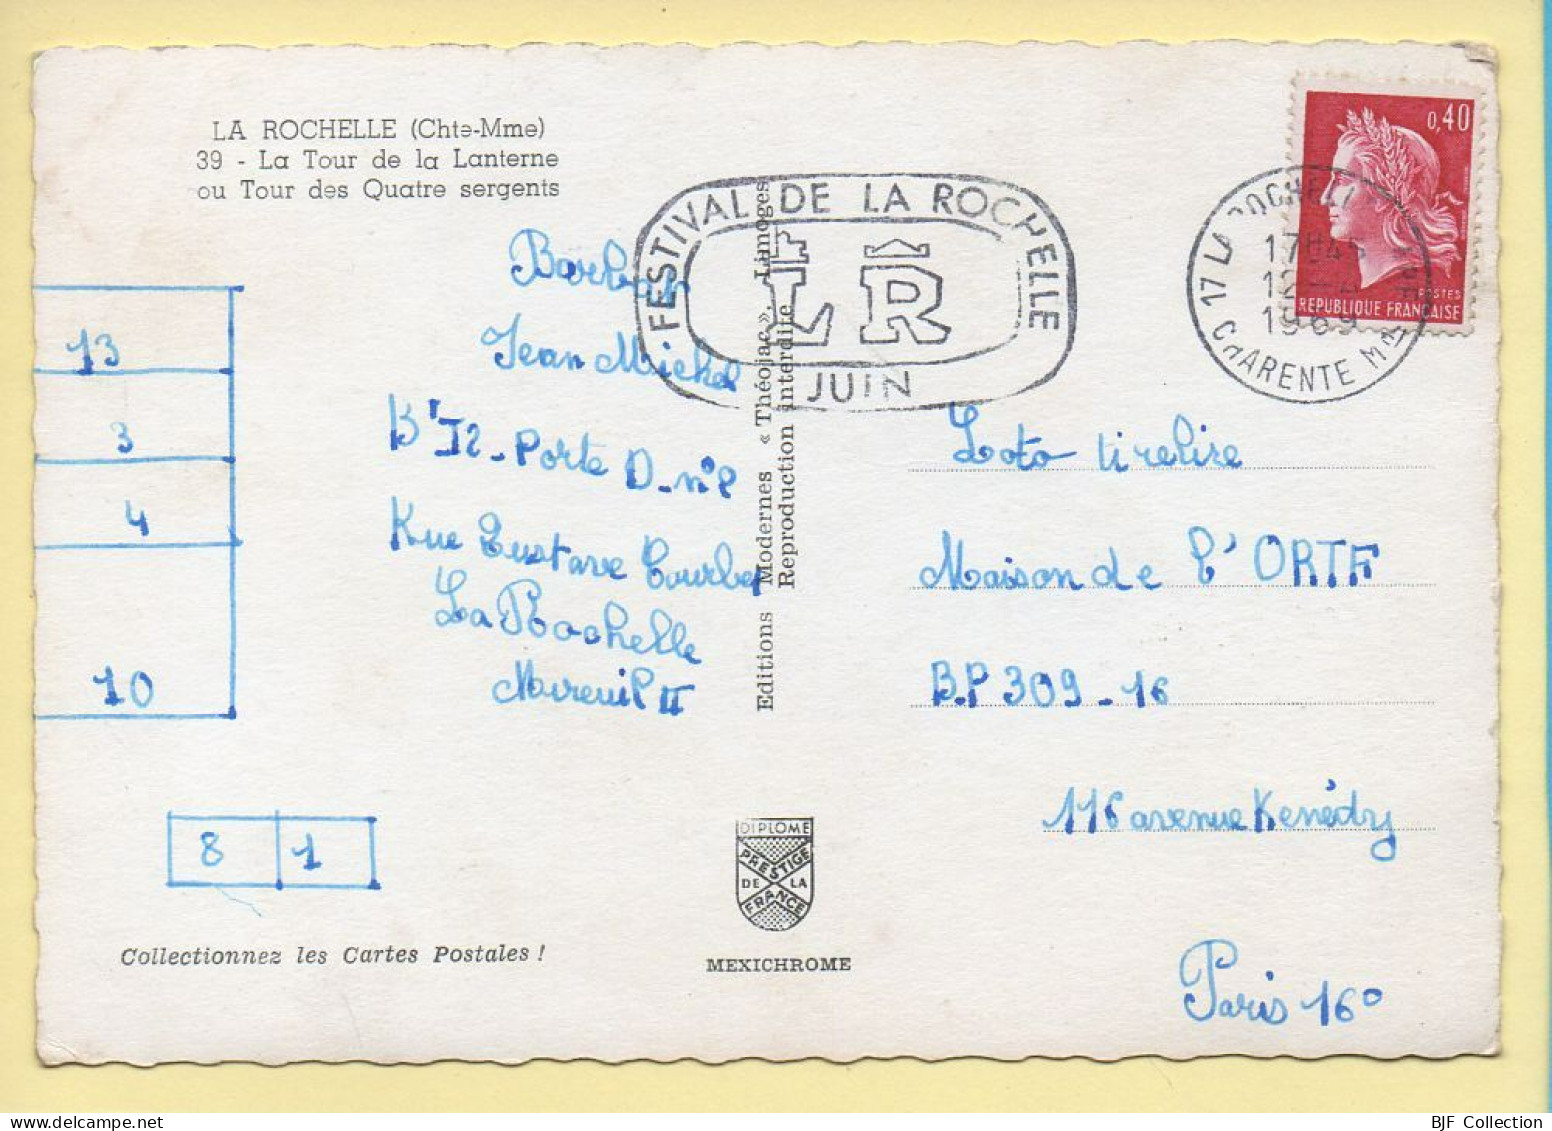 LA ROCHELLE (Chte-Mme)
39 - La Tour de la Lanterne
ou Tour des Quatre sergents
FESTIVAL DE LA ROCHELLE
LR
JUIN
17 LA ROCHELLE
17H45
12
1969
CHARENTE MME
0,40
POSTES
REPUBLIQUE FRANÇAISE
Jean Michel
Porte D-n°
Rue Gustave Courbet
La Rochelle
Mireuil II
13
3
4
10
8 1
Editions Modernes « Théojac », Limoges
Reproduction interdite
Loto tirelire
Maison de l'ORTF
B.P 309-16
116 avenue Kenédy
Paris 16°
DIPLOME
PRESTIGE
DE LA
FRANCE
MEXICHROME
Collectionnez les Cartes Postales !
BJF Collection